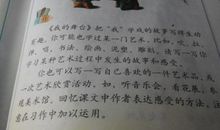 《我的舞台》把“我”学戏的故事写得生动
有趣。你可能也学过某一门艺术，比如，吹、拉、
弹、唱、书法、绘画、泥塑、雕刻，请写一写你
学习某种艺术过程中发生的故事和感受。
你也可以写一写自己喜欢的一件艺术品，或
一次艺术欣赏活动，如，听音乐会，看花展，参
观美术馆。回忆课文中作者表达感受的方法，注
意在习作中加以运用。